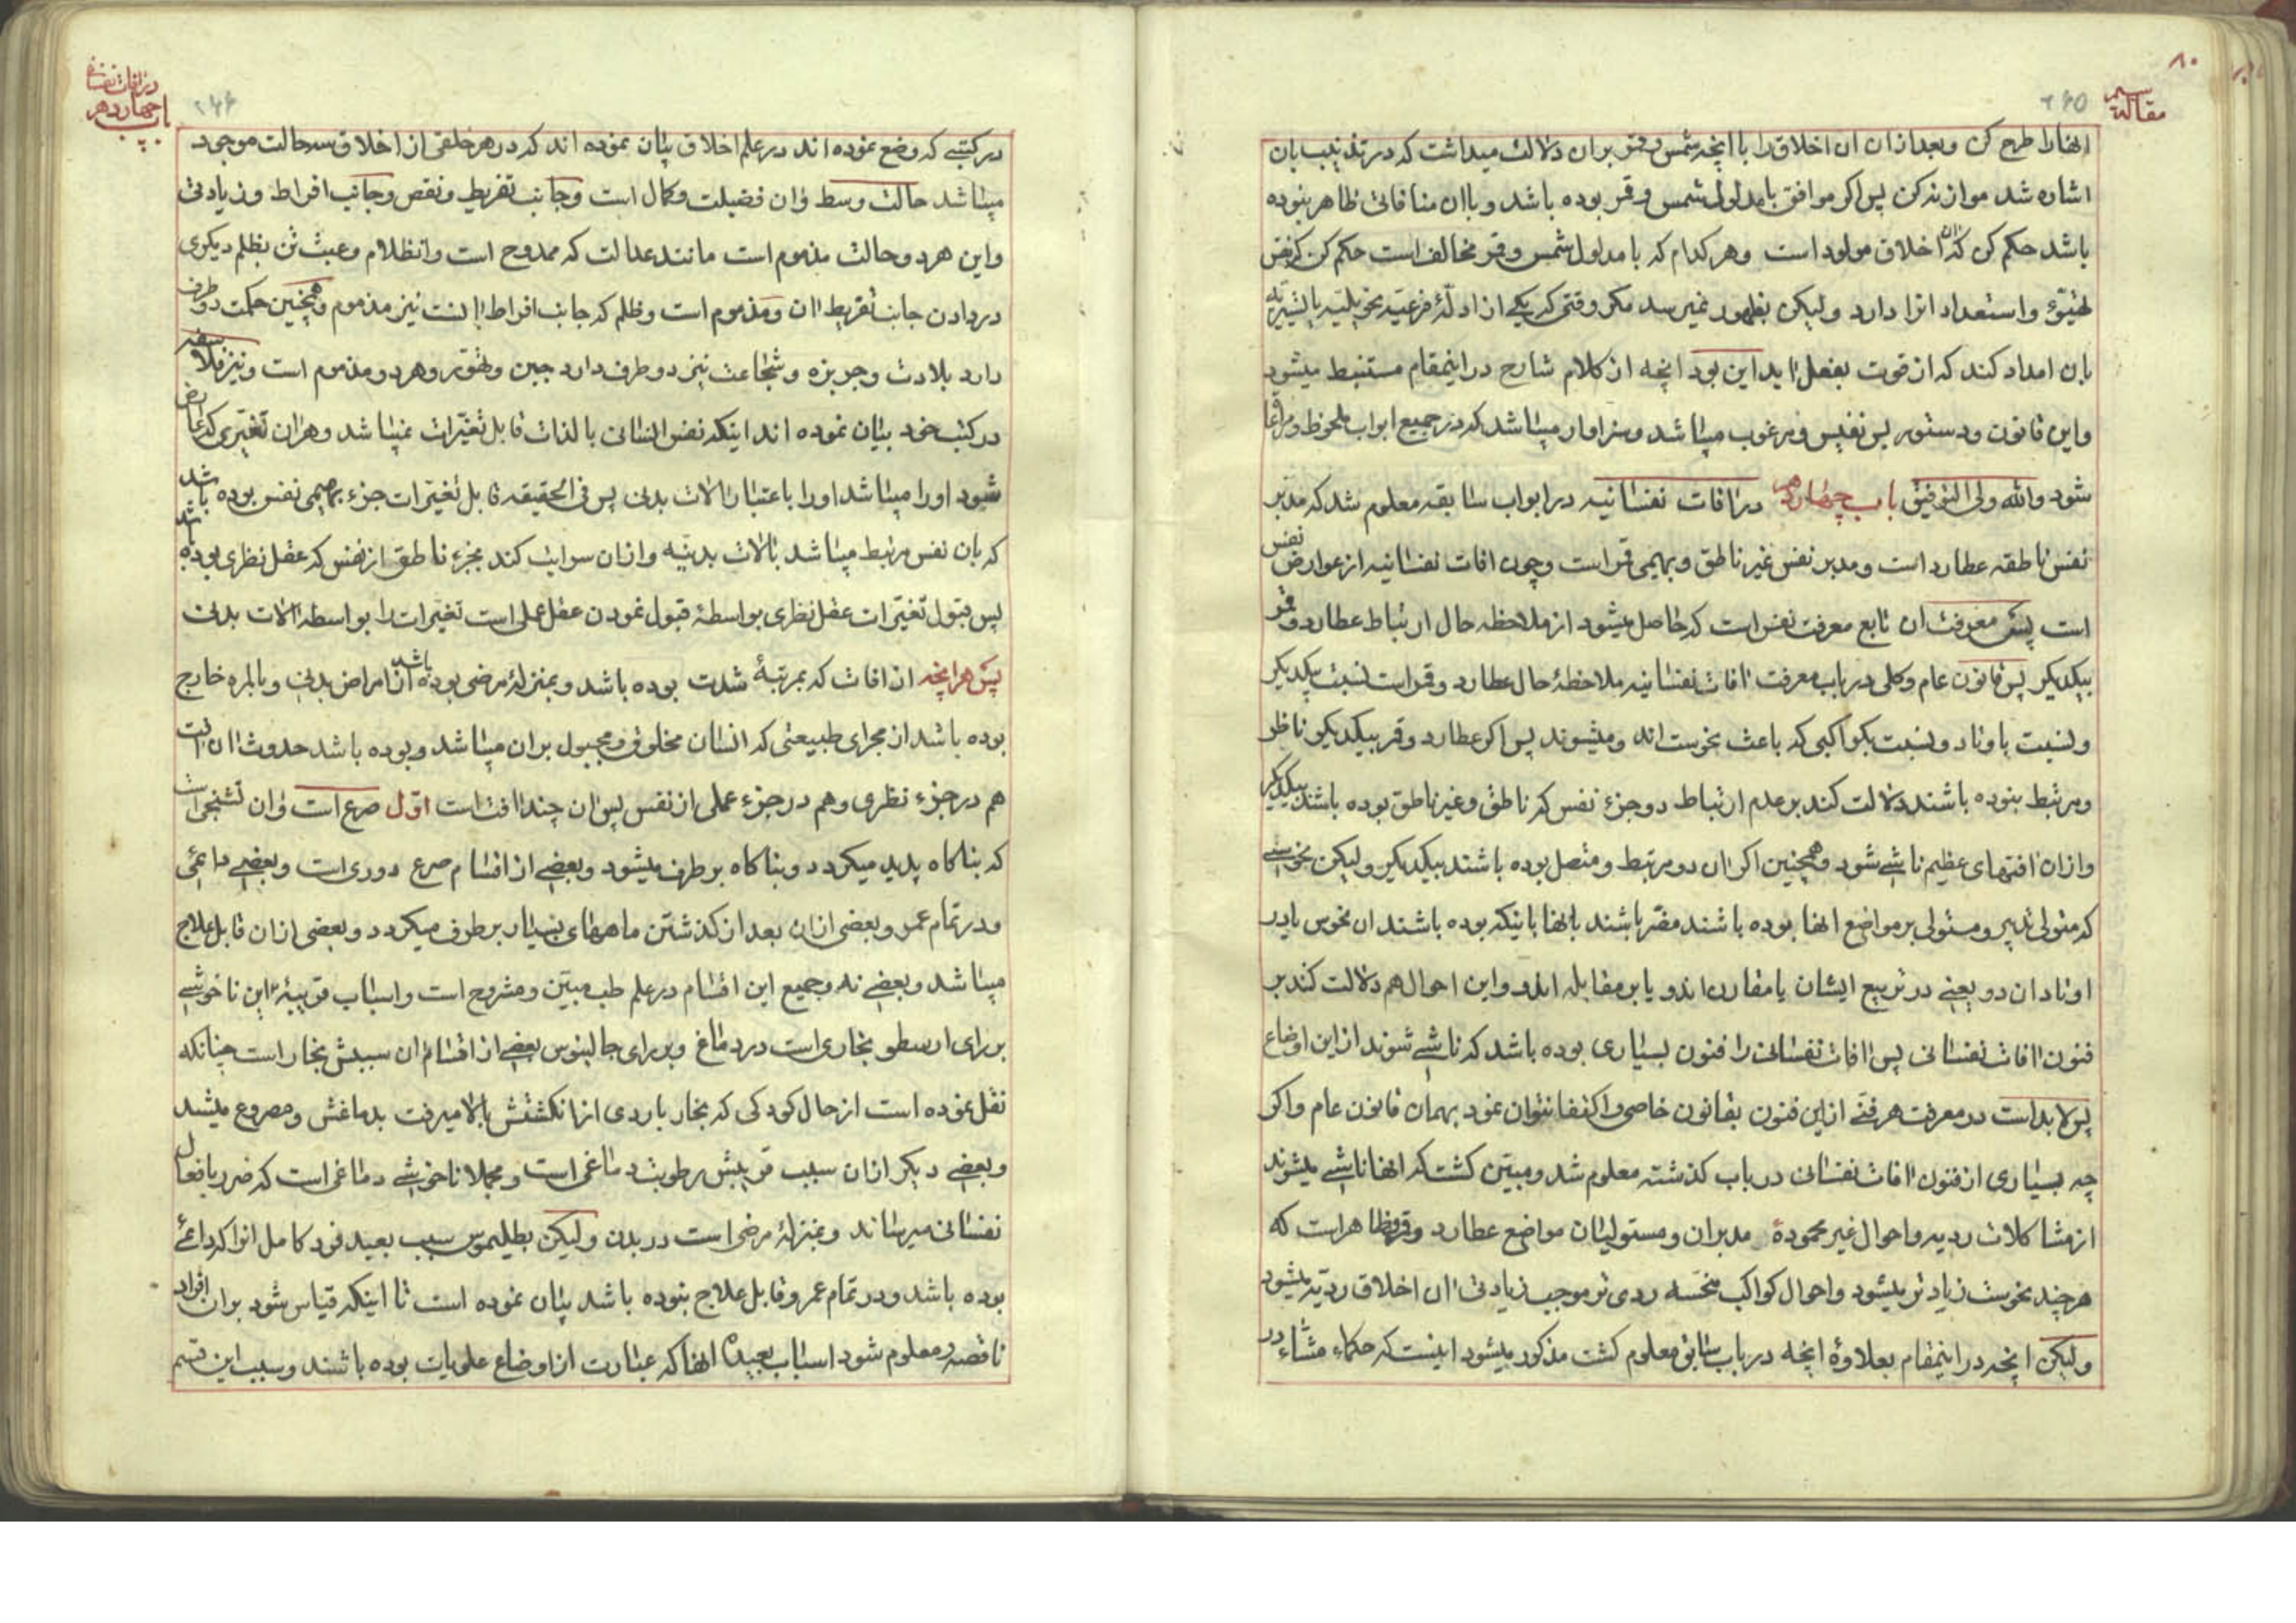 مقالة سیم
۸۰
۲۶۵
انها را طرح کن و بعد ازان ان اخلاق را با انچه شمس و قمر بران دلالت میداشت که در تذنیب بان
اشاره شد موازنه کن پس اکر موافق با مدلول شمس و قمر بوده باشد و باان منافاتی ظاهر بنوده
باشد حکم کن که ان اخلاق مولود است وهر کدام که با مدلول شمس و قمر مخالف است حکم کن که نفس
تهیّؤ و استعداد انرا دارد ولیکن بظهور نمیرسد مکر وقتی که یکی از ادلّهٔ فرعیّه تحویلیّه یا تسییریّه
بان امداد کند که از قوت بفعل اید این بود انچه از کلام شارح در اینمقام مستنبط میشود
واین قانون و دستور بس نفیس و مرغوب میباشد و سزاوار میباشد که در جمیع ابواب ملحوظ و مراعا
شود والله ولی التوفیق باب چهاردهم در افات نفسانیه در ابواب سابقه معلوم شد که مدبر
نفس ناطقه عطارد است و مدبر نفس غیر ناطق و بهیمی قمر است وچون افات نفسانیه از عوارض نفس
است پس معرفت ان تابع معرفت نفس است که حاصل میشود از ملاحظه حال ارتباط عطارد و قمر
بیکدیکر پس قانون عام وکلی در باب معرفت افات نفسانیه ملاحظهٔ حال عطارد و قمر است نسبت بیکدیکر
ونسبت باوتاد و نسبت بکواکبی که باعث نحوست اند ومیشوند پس اکر عطارد و قمر بیکدیکر ناظر
ومرتبط بنوده باشند دلالت کند بر عدم ارتباط دو جزء نفس که ناطق و غیر ناطق بوده باشند بیکدیکر
وازان افتهای عظیم ناشی شود وهمچنین اکر ان دو مرتبط و متصل بوده باشند بیکدیکر ولیکن نحوسی
که متولی تدبیر و مستولی بر مواضع انها بوده باشند مضر باشند بانها باینکه بوده باشند ان نحوس یا در
اوتاد ان دو یعنی در تربیع ایشان یا مقارن اندو یا بر مقابله اندو واین احوال هم دلالت کند بر
فنون افات نفسانی پس افات نفسانی را فنون بسیاری بوده باشد که ناشی شوند از این اوضاع
پس لابد است در معرفت هر فنی از این فنون بقانون خاصی و اکتفا نتوان نمود بهمان قانون عام واکر
چه بسیاری از فنون افات نفسانی در باب کذشته معلوم شد و مبیّن کشت که انها ناشی میشوند
از مشاکلات ردیه و احوال غیر محمودهٔ مدبران و مستولیان مواضع عطارد و قمر وظاهر است که
هر چند نحوست زیاد تر میشود و احوال کواکب منحسه ردی تر موجب زیادتی ان اخلاق ردیّه میشود
ولیکن انچه در اینمقام بعلاوهٔ انچه در باب سابق معلوم کشت مذکور میشود اینست که حکماء مشاء در
در افات نفسانی
باب چهاردهم
۲۶۶
در کتبی که وضع نموده اند در علم اخلاق بیان نموده اند که در هر خلقی از اخلاق سه حالت موجود
میباشد حالت وسط وان فضیلت و کمال است وجانب تفریط و نقص وجانب افراط وزیادتی
واین هر دو حالت مذموم است مانند عدالت که ممدوح است وانظلام وعبث تن بظلم دیکری
در دادن جانب تفریط ان ومذموم است وظلم که جانب افراط انست نیز مذموم وهمچنین حکمت دو طرف
دارد بلادت وجربزه وشجاعت نیز دو طرف دارد جبن وتهوّر وهر دو مذموم است ونیز فلاسفه
در کتب خود بیان نموده اند اینکه نفس انسانی بالذات قابل تغیّرات نمیباشد وهر ان تغیّری که عارض
شود اورا میباشد اورا باعتبار الات بدنی پس فی الحقیقه قابل تغیّرات جزء بهیمی نفس بوده باشد
که بان نفس مرتبط میباشد بالات بدنیّه وازان سرایت کند بجزء ناطق از نفس که عقل نظری بوده باشد
پس قبول تغیّرات عقل نظری بواسطهٔ قبول نمودن عقل عملی است تغیّرات را بواسطه الات بدنی
پس هر انچه ازافات که بمرتبهٔ شدت بوده باشد وبمنزلهٔ مرضی بوده باشد از امراض بدنی وبالمره خارج
بوده باشد از مجرای طبیعتی که انسان مخلوق و مجبول بران میباشد وبوده باشد حدوث ان افت
هم در جزء نظری وهم در جزء عملی از نفس پس ان چند افت است اوّل صرع است وان تشنجی است
که بناکاه پدید میکردد وبناکاه برطرف میشود وبعضی از اقسام صرع دوری است وبعضی دائمی
ودر تمام عمر وبعضی ازان بعد از کذشتن ماههای بسیار برطرف میکردد وبعضی ازان قابل علاج
میباشد وبعضی نه وجمیع این اقسام در علم طب مبیّن ومشروح است واسباب قریبهٔ این ناخوشی
بر رای ارسطو بخاری است در دماغ وبر رای جالینوس بعضی از اقسام ان سببش بخار است چنانکه
نقل نموده است از حال کودکی که بخار باردی از انکشتش بالا میرفت بدماغش ومصروع میشد
وبعضی دیکر ازان سبب قریبش رطوبت دماغی است ومجملا ناخوشی دماغی است که ضرر بافعال
نفسانی میرساند وبمنزلهٔ مرضی است در بدن ولیکن بطلیموس سبب بعید فرد کامل انرا که دائمی
بوده باشد ودر تمام عمر وقابل علاج بنوده باشد بیان نموده است تا اینکه قیاس شود بران افراد
ناقصه ومعلوم شود اسباب بعیده انها که عبارت از اوضاع علویات بوده باشند وسبب این قسم